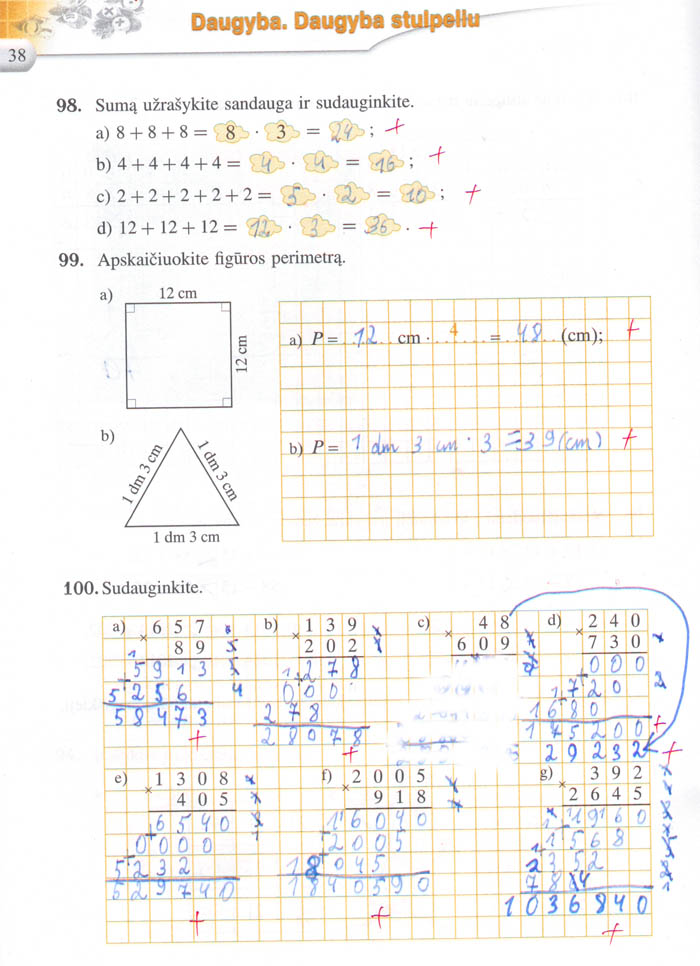 Daugyba. Daugyba stulpeliu
38
98. Sumą užrašykite sandauga ir sudauginkite.
a) 8 + 8 + 8 = 8 · 3 = 24 ; +
b) 4 + 4 + 4 + 4 = 4 · 4 = 16 ; +
c) 2 + 2 + 2 + 2 + 2 = 5 · 2 = 10 ; +
d) 12 + 12 + 12 = 12 · 3 = 36 . +
99. Apskaičiuokite figūros perimetrą.
a) 12 cm
12 cm
a) P = 12 cm · 4 = 48 (cm); +
b) 1 dm 3 cm 1 dm 3 cm
1 dm 3 cm
b) P = 1 dm 3 cm · 3 = 39 (cm) +
100. Sudauginkite.
a) × 657
89
5913
5256
58473
+
b) × 139
202
278
000
278
28078
+
c) × 48
609
d) × 240
730
000
720
1680
175200 +
29232 +
e) × 1308
405
6540
0000
5232
529740
+
f) × 2005
918
16040
2005
18045
1840590
+
g) × 392
2645
1960
1568
2352
784
1036840
+